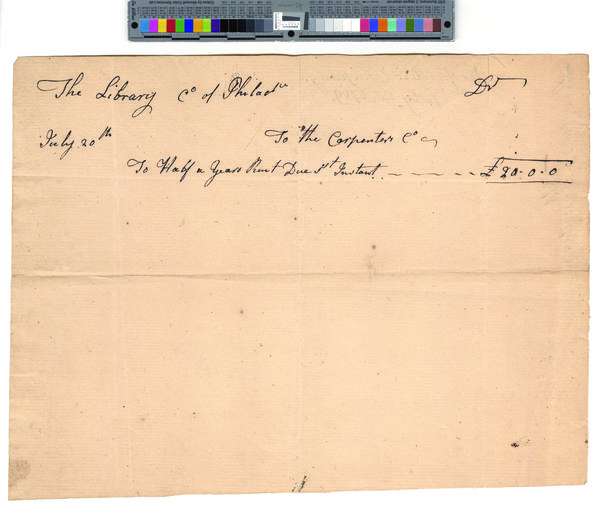 The Library Co of Philada Dr
July 20th To the Carpenters Co
To Half a Years Rent Due 1st Instant £20-0-0